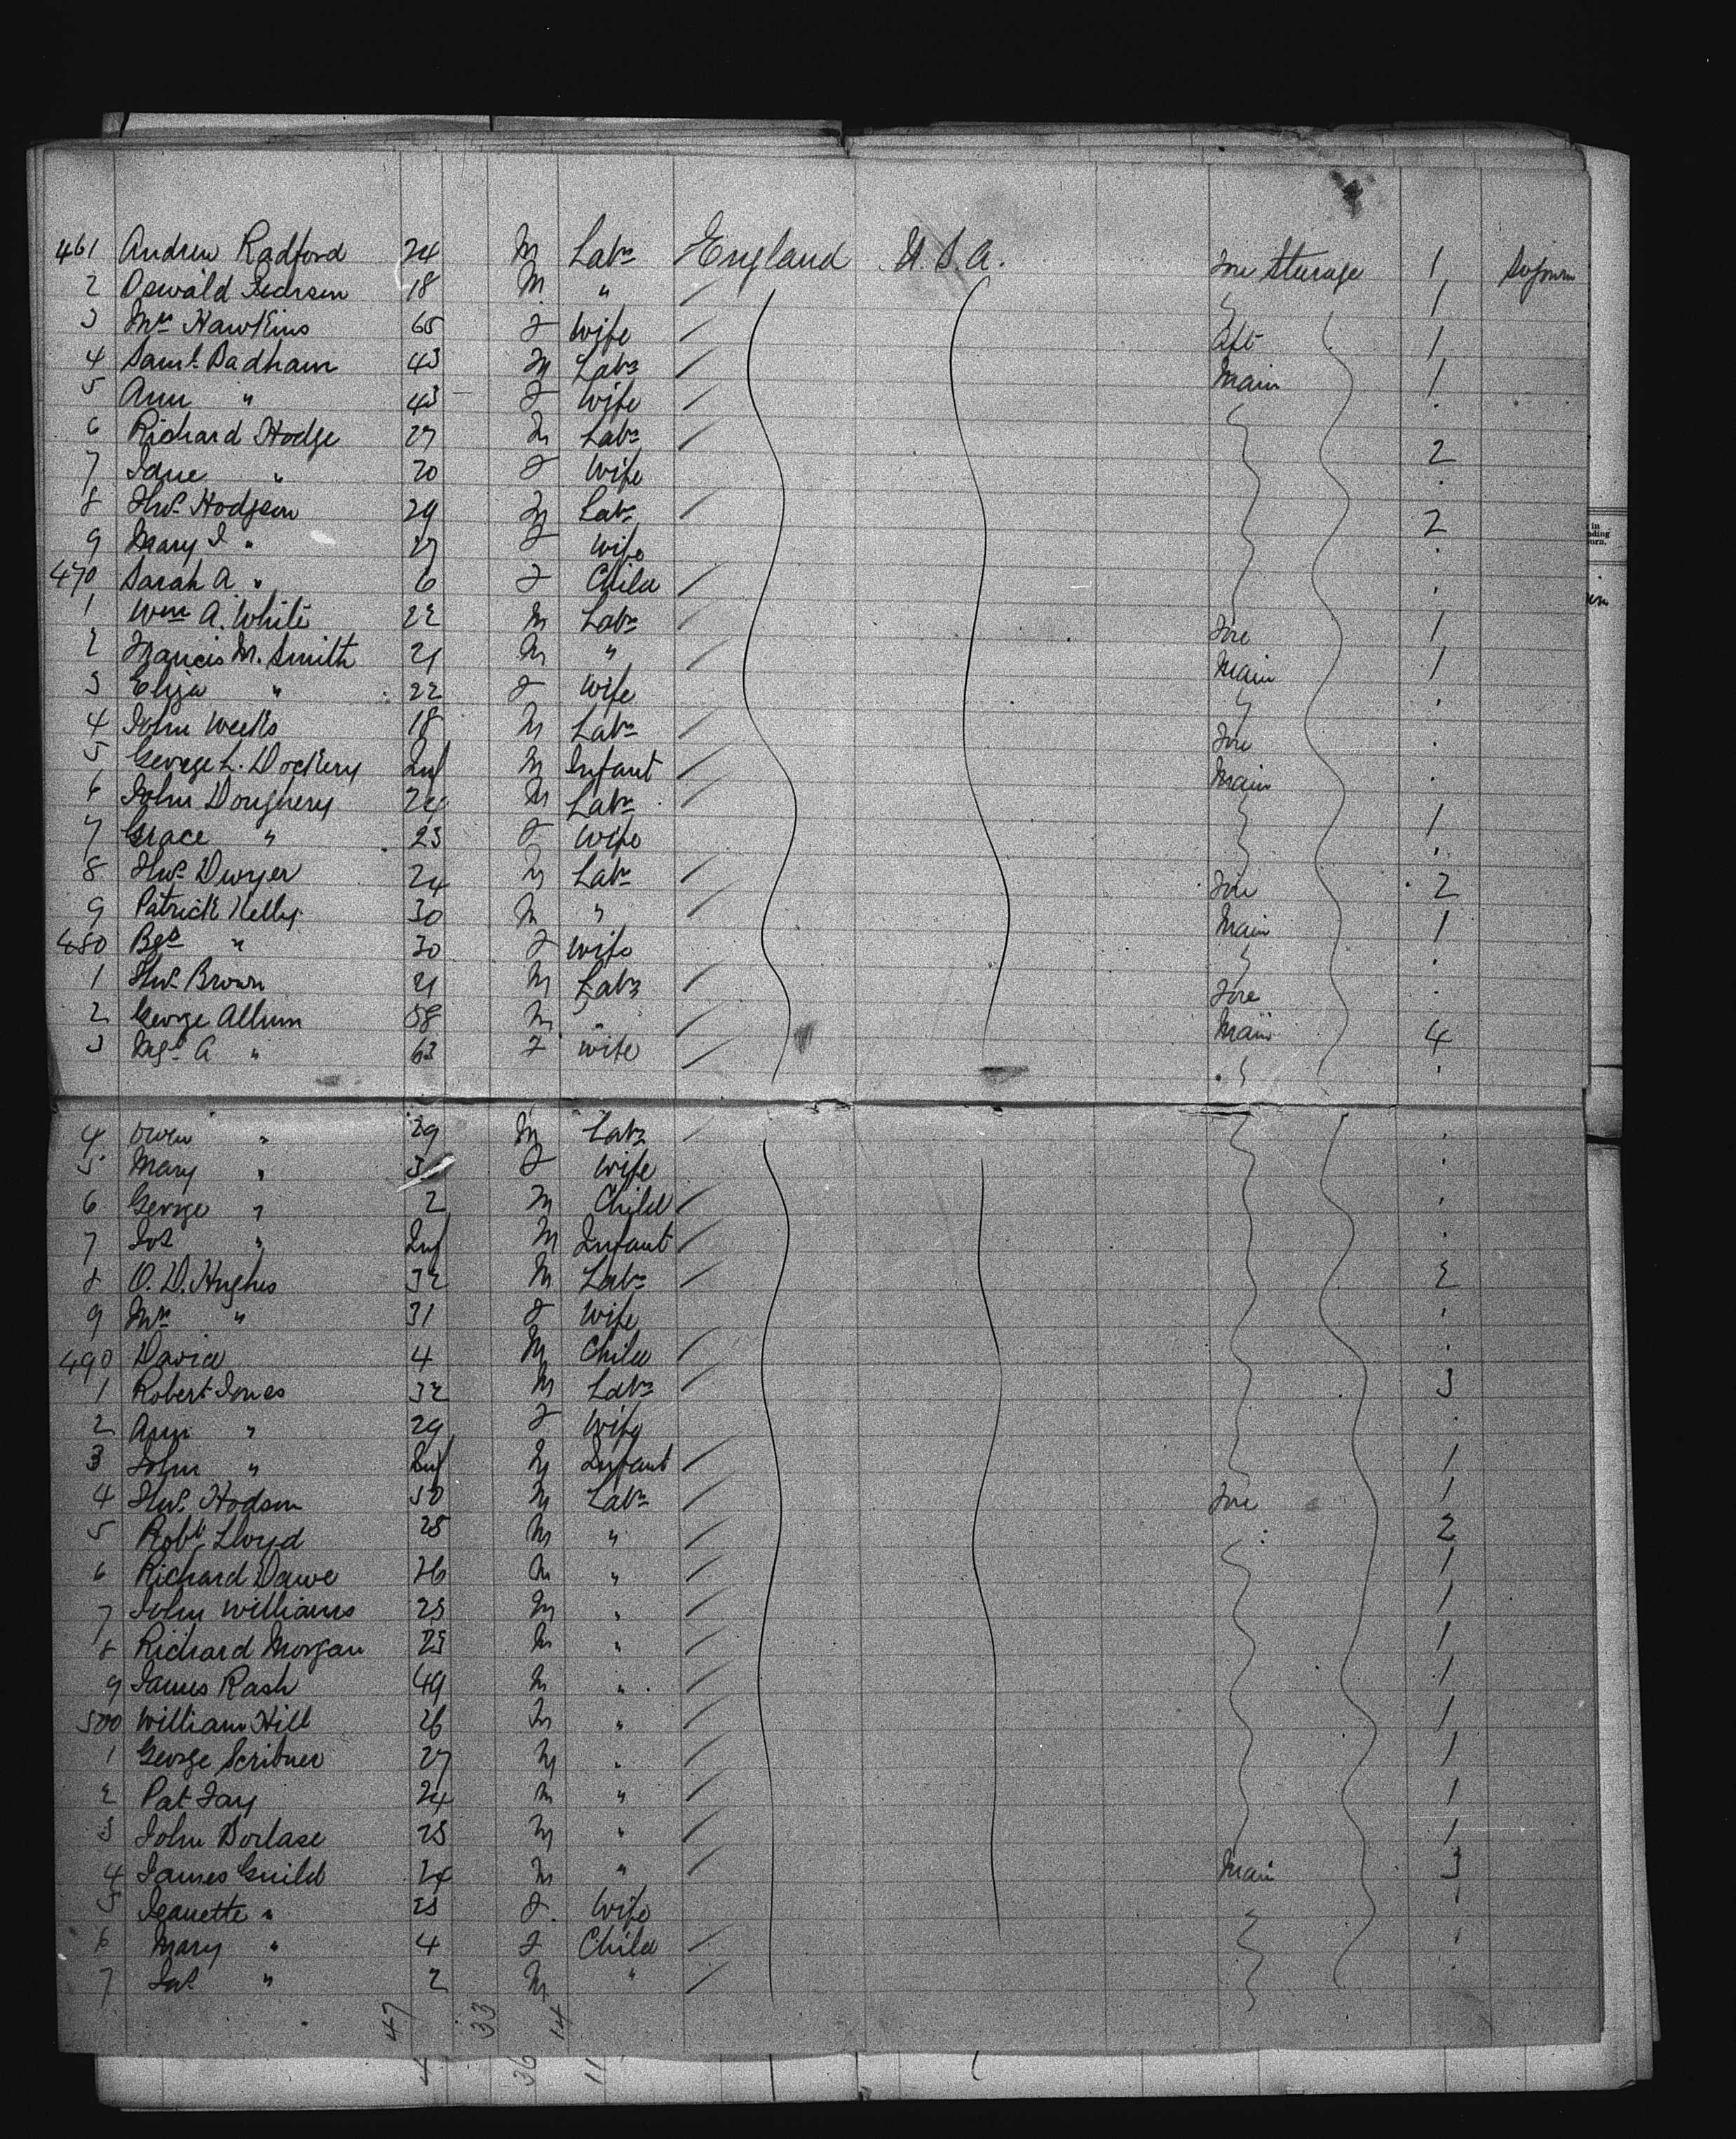 461 Andrew Radford 24 M Labr England U.S.A. Fore Steerage 1 Sojourn
2 Oswald Pearson 18 M " 1
3 Mrs Hawkins 65 F Wife Aft 1
4 Saml Badham 43 M Labr Main 1
5 Ann " 43 F Wife
6 Richard Hodge 27 M Labr 2
7 Jane " 20 F Wife
8 Thos Hodgson 29 M Labr 2
9 Mary J " 27 F Wife
470 Sarah A. " 6 F Child
1 Wm A. White 22 M Labr Fore 1
2 Francis M. Smith 21 M " Main 1
3 Eliza " 22 F Wife
4 John Weeks 18 M Labr Fore
5 George L. Dockery Inf M Infant Main
6 John Doughery 24 M Labr 1
7 Grace " 23 F Wife
8 Thos Dwyer 24 M Labr Fore 2
9 Patrick Kelly 30 M " Main 1
480 " 30 F Wife
1 Thos Brown 21 M Labr Fore
2 George Allum 58 M " Main 4
3 A " 63 F Wife
4 Owen " 29 M Labr
5 Mary " F Wife
6 George " 2 M Child
7 Jos " Inf M Infant
8 O. D. Hughes 32 M Labr 2
9 Mrs " 31 F Wife
490 David 4 M Child
1 Robert Jones 32 M Labr 3
2 Ann " 29 F Wife
3 John " Inf M Infant 1
4 Thos Hodson 50 M Labr Fore 1
5 Robt Lloyd 28 M " 2
6 Richard Dawe 26 M " 1
7 John Williams 25 M " 1
8 Richard Morgan 25 M " 1
9 James Rash 49 M " 1
500 William Hill 26 M " 1
1 George Scribner 27 M " 1
2 Pat Fay 24 M " 1
3 John Borlase 25 M " 1
4 James Guild 24 M " Main 3
5 Jeanette " 25 F Wife
6 Mary " 4 F Child
7 Jas " 2 M "
47 33 14
36 11